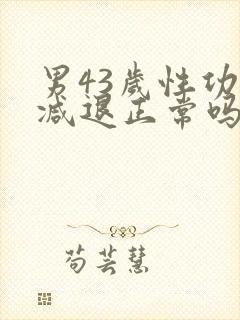 男43岁性功
减退正常吗
苟芸慧